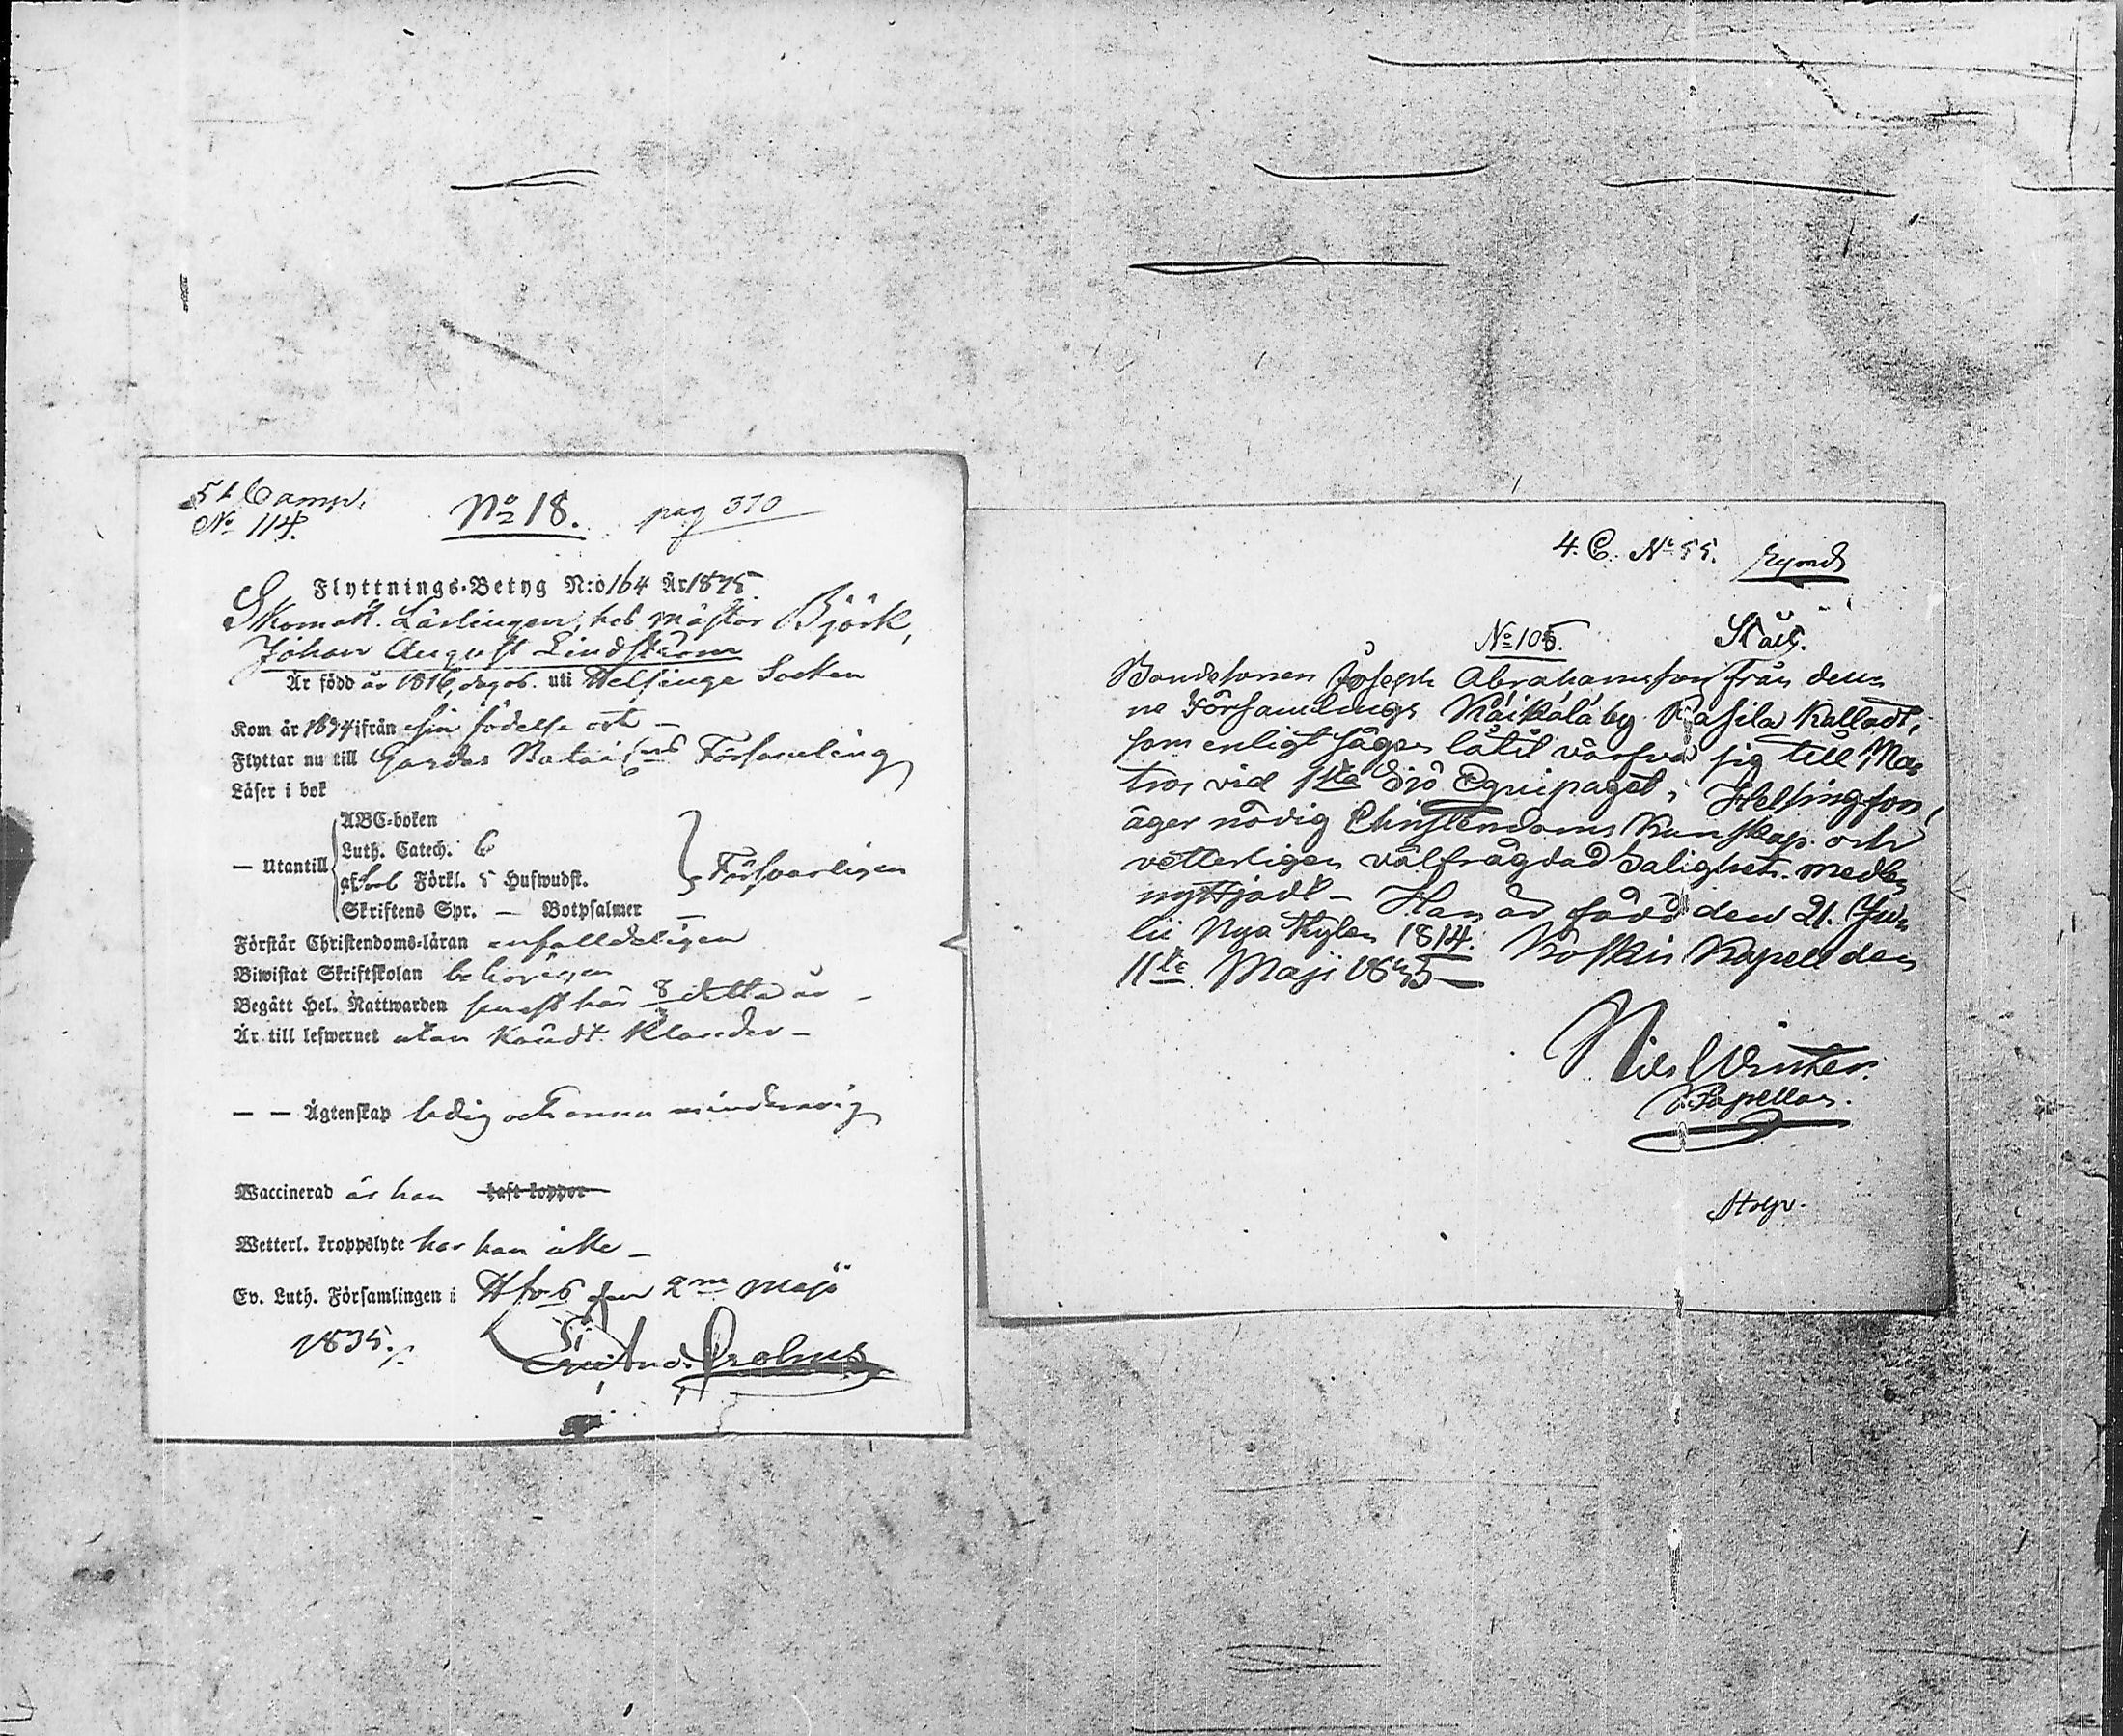 5t Comp.
No 114.
No 18.
pag 370
Flyttnings-Betyg N:o 164 År 1835.
Skomak. Lärlingen, hos mästar Björk,
Johan August Lindström
Är född år 1816, dag os. uti Helsinge Socken
Kom år 1834 ifrån sin födelse ort –
Flyttar nu till Gardes Batail:ns Församling
Läser i bok
— Utantill
ABC-boken
Luth. Catech. 6
af Förkl. 5 Hufwudst.
Skriftens Spr. — Botpsalmer —
Försvarligen
Förstår Christendoms-läran enfalldeligen
Biwistat Skriftskolan behörigen
Begått Hel. Nattwarden senast här detta år –
Är till lefwernet utan kändt klander –
— — Ägtenskap ledig och ännu minderårig
Waccinerad är han haft koppor
Wetterl. kroppslyte har han icke –
Ev. Luth. Församlingen i H:fors den 2 Maji
1835.
4. C. No 55.
No 105.
Bondesonen Joseph Abrahamsson från den-
na Församlings Käikälä by Rasila Kalladt,
som enligt sägen låtit värfva sig till Ma-
tros vid 1sta Sjö Equipaget i Helsingfors,
äger nödig Christendoms Kunskap och
vetterligen välfrägdad Salighets medlen
nyttjadt – Han är född den 21. Ju-
lii Nya Stylen 1814. Koskis Kapell den
11te Maji 1835 –
Nils Winter
V. Capellan.